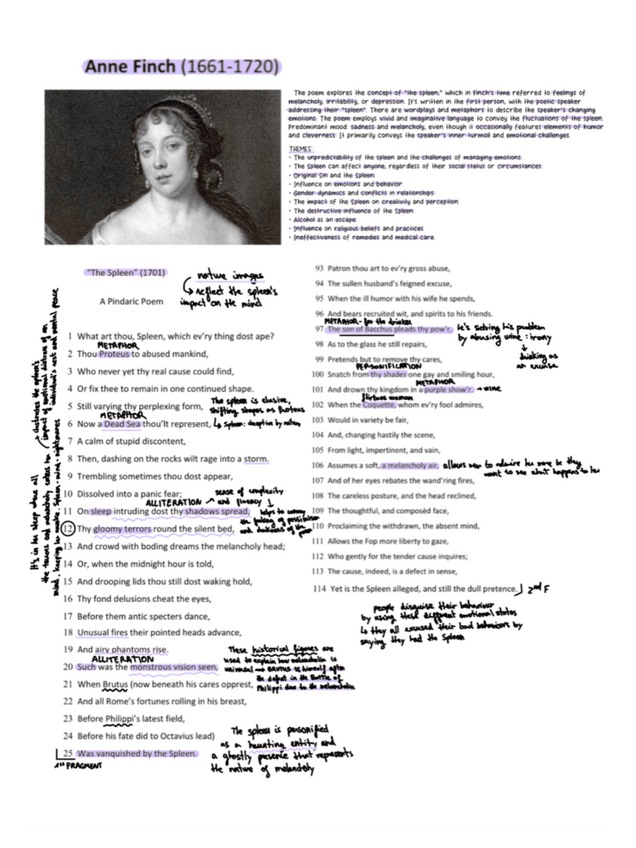 Anne Finch (1661-1720)
The poem explores the concept of "the spleen," which in Finch's time referred to feelings of
melancholy, irritability, or depression. It's written in the first person, with the poetic speaker
addressing their "spleen". There are wordplays and metaphors to describe the speaker's changing
emotions. The poem employs vivid and imaginative language to convey the fluctuations of the spleen.
Predominant mood: sadness and melancholy, even though it occasionally features elements of humor
and cleverness. It primarily conveys the speaker's inner turmoil and emotional challenges.
THEMES:
• The unpredictability of the spleen and the challenges of managing emotions
• The Spleen can affect anyone, regardless of their social status or circumstances.
• Original Sin and the Spleen
• Influence on emotions and behavior
• Gender dynamics and conflicts in relationships
• The impact of the Spleen on creativity and perception
• The destructive influence of the Spleen
• Alcohol as an escape
• Influence on religious beliefs and practices
• Ineffectiveness of remedies and medical care
"The Spleen" (1701)
nature images
↳ reflect the spleen's
impact on the mind
A Pindaric Poem
1 What art thou, Spleen, which ev'ry thing dost ape?
METAPHOR
2 Thou Proteus to abused mankind,
3 Who never yet thy real cause could find,
4 Or fix thee to remain in one continued shape.
5 Still varying thy perplexing form,
The spleen is elusive,
shifting shapes as Proteus
METAPHOR
6 Now a Dead Sea thou'lt represent,
↳ Spleen: deceptive by nature
7 A calm of stupid discontent,
8 Then, dashing on the rocks wilt rage into a storm.
9 Trembling sometimes thou dost appear,
10 Dissolved into a panic fear;
sense of complexity
and fluency
ALLITERATION
11 On sleep intruding dost thy shadows spread,
12 Thy gloomy terrors round the silent bed,
13 And crowd with boding dreams the melancholy head;
14 Or, when the midnight hour is told,
15 And drooping lids thou still dost waking hold,
16 Thy fond delusions cheat the eyes,
17 Before them antic specters dance,
18 Unusual fires their pointed heads advance,
19 And airy phantoms rise.
ALLITERATION
20 Such was the monstrous vision seen,
These historical figures are
used to explain how melancholia is
universal → BRUTUS
the defeat in the Battle of
Philippi due to the melancholia
21 When Brutus (now beneath his cares opprest,
22 And all Rome's fortunes rolling in his breast,
23 Before Philippi's latest field,
24 Before his fate did to Octavius lead)
25 Was vanquished by the Spleen.
1st FRAGMENT
The spleen is personified
as a haunting entity and
a ghostly presence that represents
the nature of melancholy
93 Patron thou art to ev'ry gross abuse,
94 The sullen husband's feigned excuse,
95 When the ill humor with his wife he spends,
96 And bears recruited wit, and spirits to his friends.
METAPHOR - for the drinker
97 The son of Bacchus pleads thy pow'r,
he's solving his problem
by abusing wine : irony
↓
drinking as
an excuse
98 As to the glass he still repairs,
99 Pretends but to remove thy cares,
PERSONIFICATION
100 Snatch from thy shades one gay and smiling hour,
METAPHOR
101 And drown thy kingdom in a purple show'r.
→ wine
102 When the Coquette, whom ev'ry fool admires,
103 Would in variety be fair,
104 And, changing hastily the scene,
105 From light, impertinent, and vain,
106 Assumes a soft, a melancholy air,
107 And of her eyes rebates the wand'ring fires,
108 The careless posture, and the head reclined,
109 The thoughtful, and composèd face,
110 Proclaiming the withdrawn, the absent mind,
111 Allows the Fop more liberty to gaze,
112 Who gently for the tender cause inquires;
113 The cause, indeed, is a defect in sense,
114 Yet is the Spleen alleged, and still the dull pretence.
2nd F
people disguise their behaviour
by using these different emotional states
↳ they all excused their bad behaviors by
saying they had the Spleen